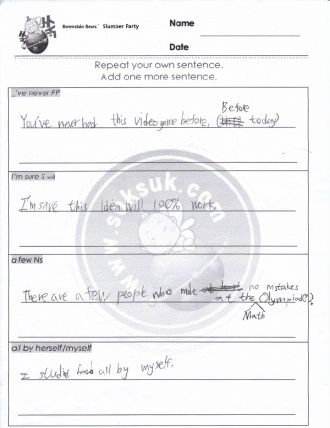 Berenstain Bears Slumber Party
Name
Date
Repeat your own sentence.
Add one more sentence.
_'ve never PP
Before
You've never had this Videogame before, (today)
I'm sure S will
I'm sure this idea will 100% work.
a few Ns
There are a few people who make no mistakes
at the Olympiad?
Math
all by herself/myself
I studied hard all by myself.
www.suksuk.com